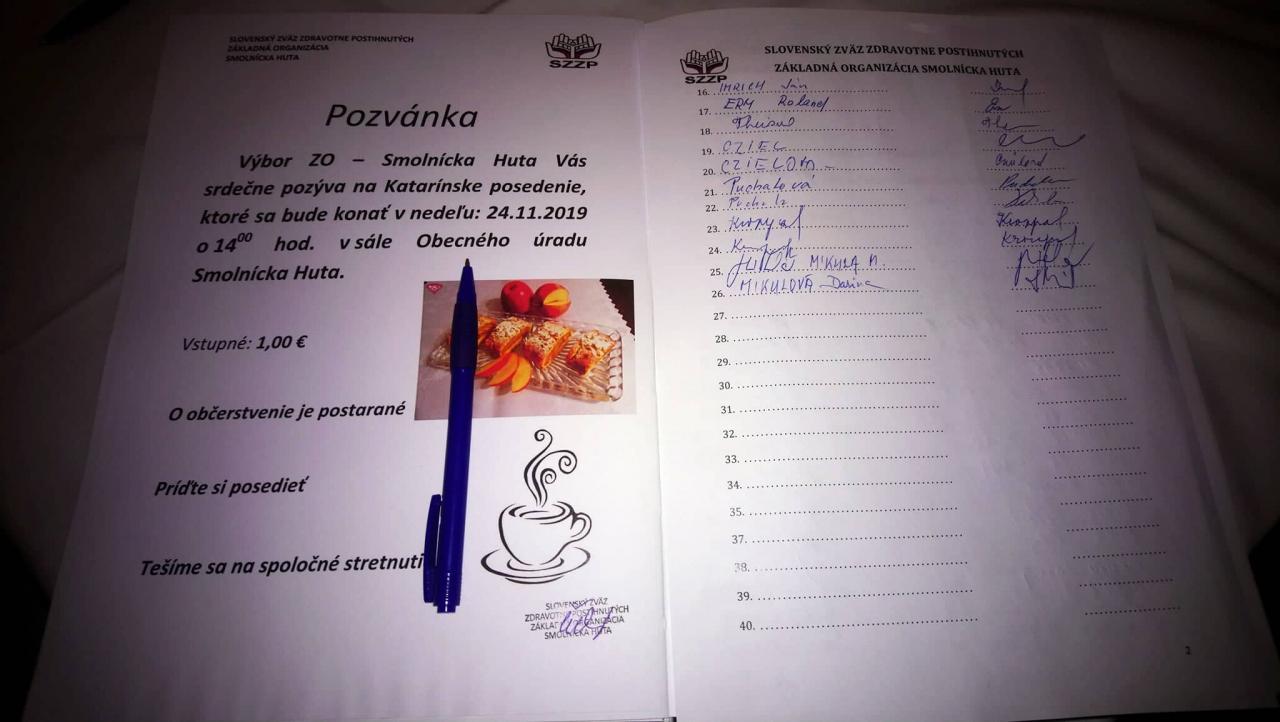 SLOVENSKÝ ZVÄZ ZDRAVOTNE POSTIHNUTÝCH
ZÁKLADNÁ ORGANIZÁCIA
SMOLNÍCKA HUTA
SZZP
Pozvánka
Výbor ZO – Smolnícka Huta Vás
srdečne pozýva na Katarínske posedenie,
ktoré sa bude konať v nedeľu: 24.11.2019
o 14⁰⁰ hod. v sále Obecného úradu
Smolnícka Huta.
Vstupné: 1,00 €
O občerstvenie je postarané
Príďte si posedieť
Tešíme sa na spoločné stretnuti
SLOVENSKÝ ZVÄZ
ZDRAVOTNE POSTIHNUTÝCH
ZÁKLADNÁ ORGANIZÁCIA
SMOLNÍCKA HUTA
SZZP
SLOVENSKÝ ZVÄZ ZDRAVOTNE POSTIHNUTÝCH
ZÁKLADNÁ ORGANIZÁCIA SMOLNÍCKA HUTA
16. IMRICH Ján
17. ERM Roland
18.
19. CZIEL
20. CZIELOM
21. Puchalová
22.
23.
24.
25. MIKULA M.
26. MIKULOVÁ Darina
27.
28.
29.
30.
31.
32.
33.
34.
35.
37.
38.
39.
40.
2